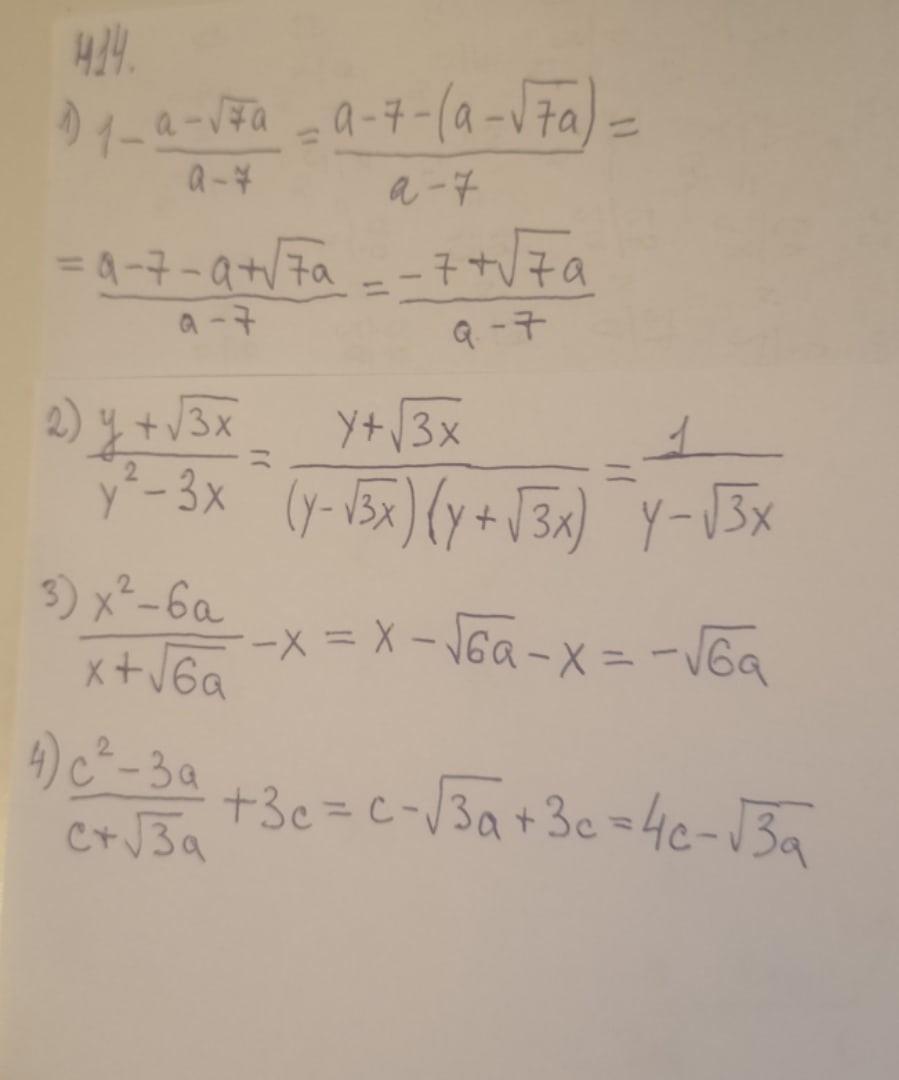 414.
1) 1 - (a - √7a)/(a - 7) = (a - 7 - (a - √7a))/(a - 7) =
= (a - 7 - a + √7a)/(a - 7) = (-7 + √7a)/(a - 7)
2) (y + √3x)/(y² - 3x) = (y + √3x)/((y - √3x)(y + √3x)) = 1/(y - √3x)
3) (x² - 6a)/(x + √6a) - x = x - √6a - x = -√6a
4) (c² - 3a)/(c + √3a) + 3c = c - √3a + 3c = 4c - √3a